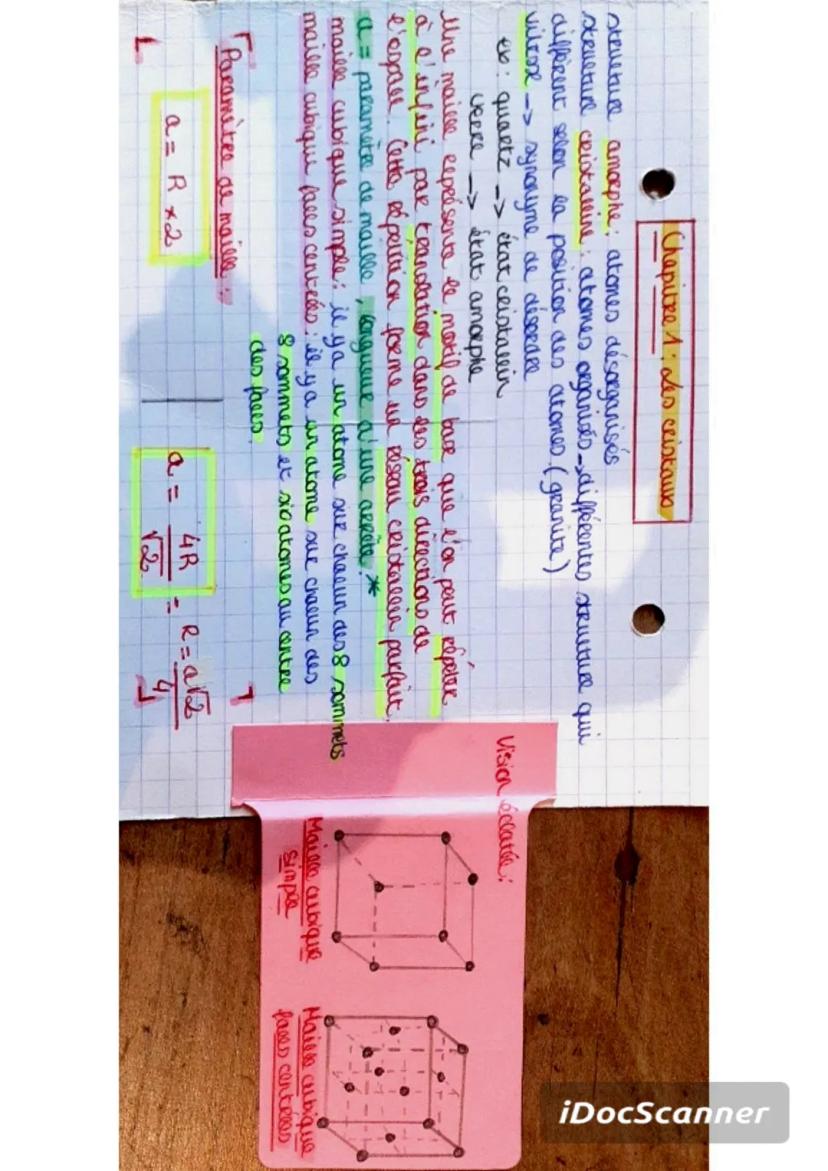 Chapitre 1 : Les cristaux
structure amorphe : atomes désorganisés
structure cristalline : atomes organisés → différentes structure qui
diffèrent selon la position des atomes (granite)
vitreux → synonyme de désordre
ex : quartz → état cristallin
verre → état amorphe
Une maille représente le motif de base que l'on peut répéter
à l'infini par translation dans les trois directions de
l'espace. Cette répétition forme un réseau cristallin parfait.
a = paramètre de maille, longueur d'une arrête. *
maille cubique simple : il y a un atome sur chacun des 8 sommets
maille cubique faces centrées : il y a un atome sur chacun des
8 sommets et six atomes au centre
des faces.
Paramètre de maille :
a = R × 2
a = 4R/√2 = R = a√2/4
Vision éclatée :
Maille cubique
simple
Maille cubique
faces centrées
iDocScanner